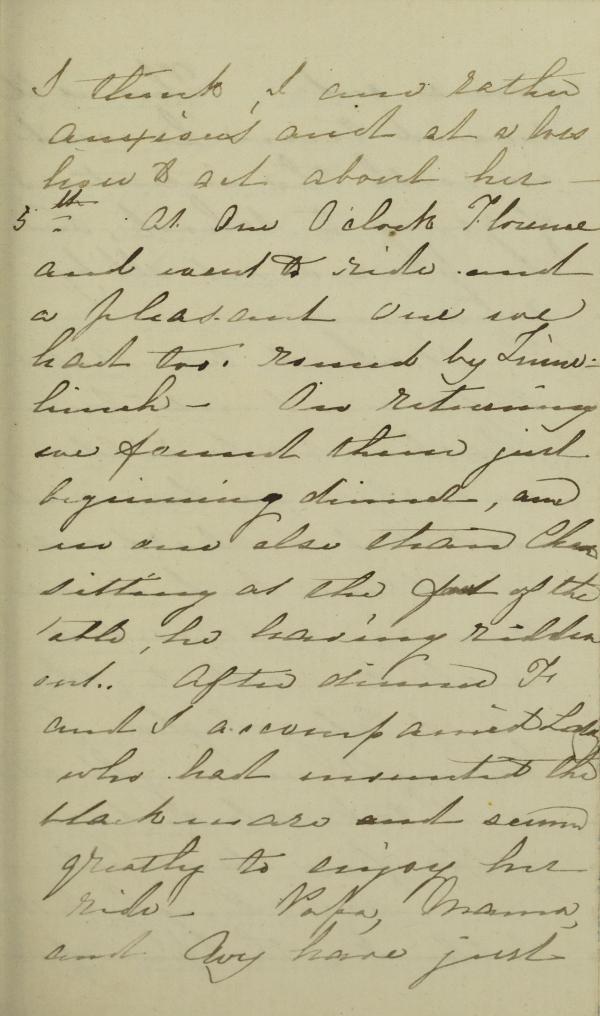 I think, I am rather
anxious and at a loss
how to act about her -
5th. At One O'clock Florence
and went to ride and
a pleasant one we
had too. round by Lime-
-
On returning
we found them just
beginning dinner, and
no one else than
sitting at the foot of the
table, he having ridden
out.. After dinner F.
and I accompanied
who had mounted the
black mare and seemed
greatly to enjoy her
ride - Papa, Mama,
and have just